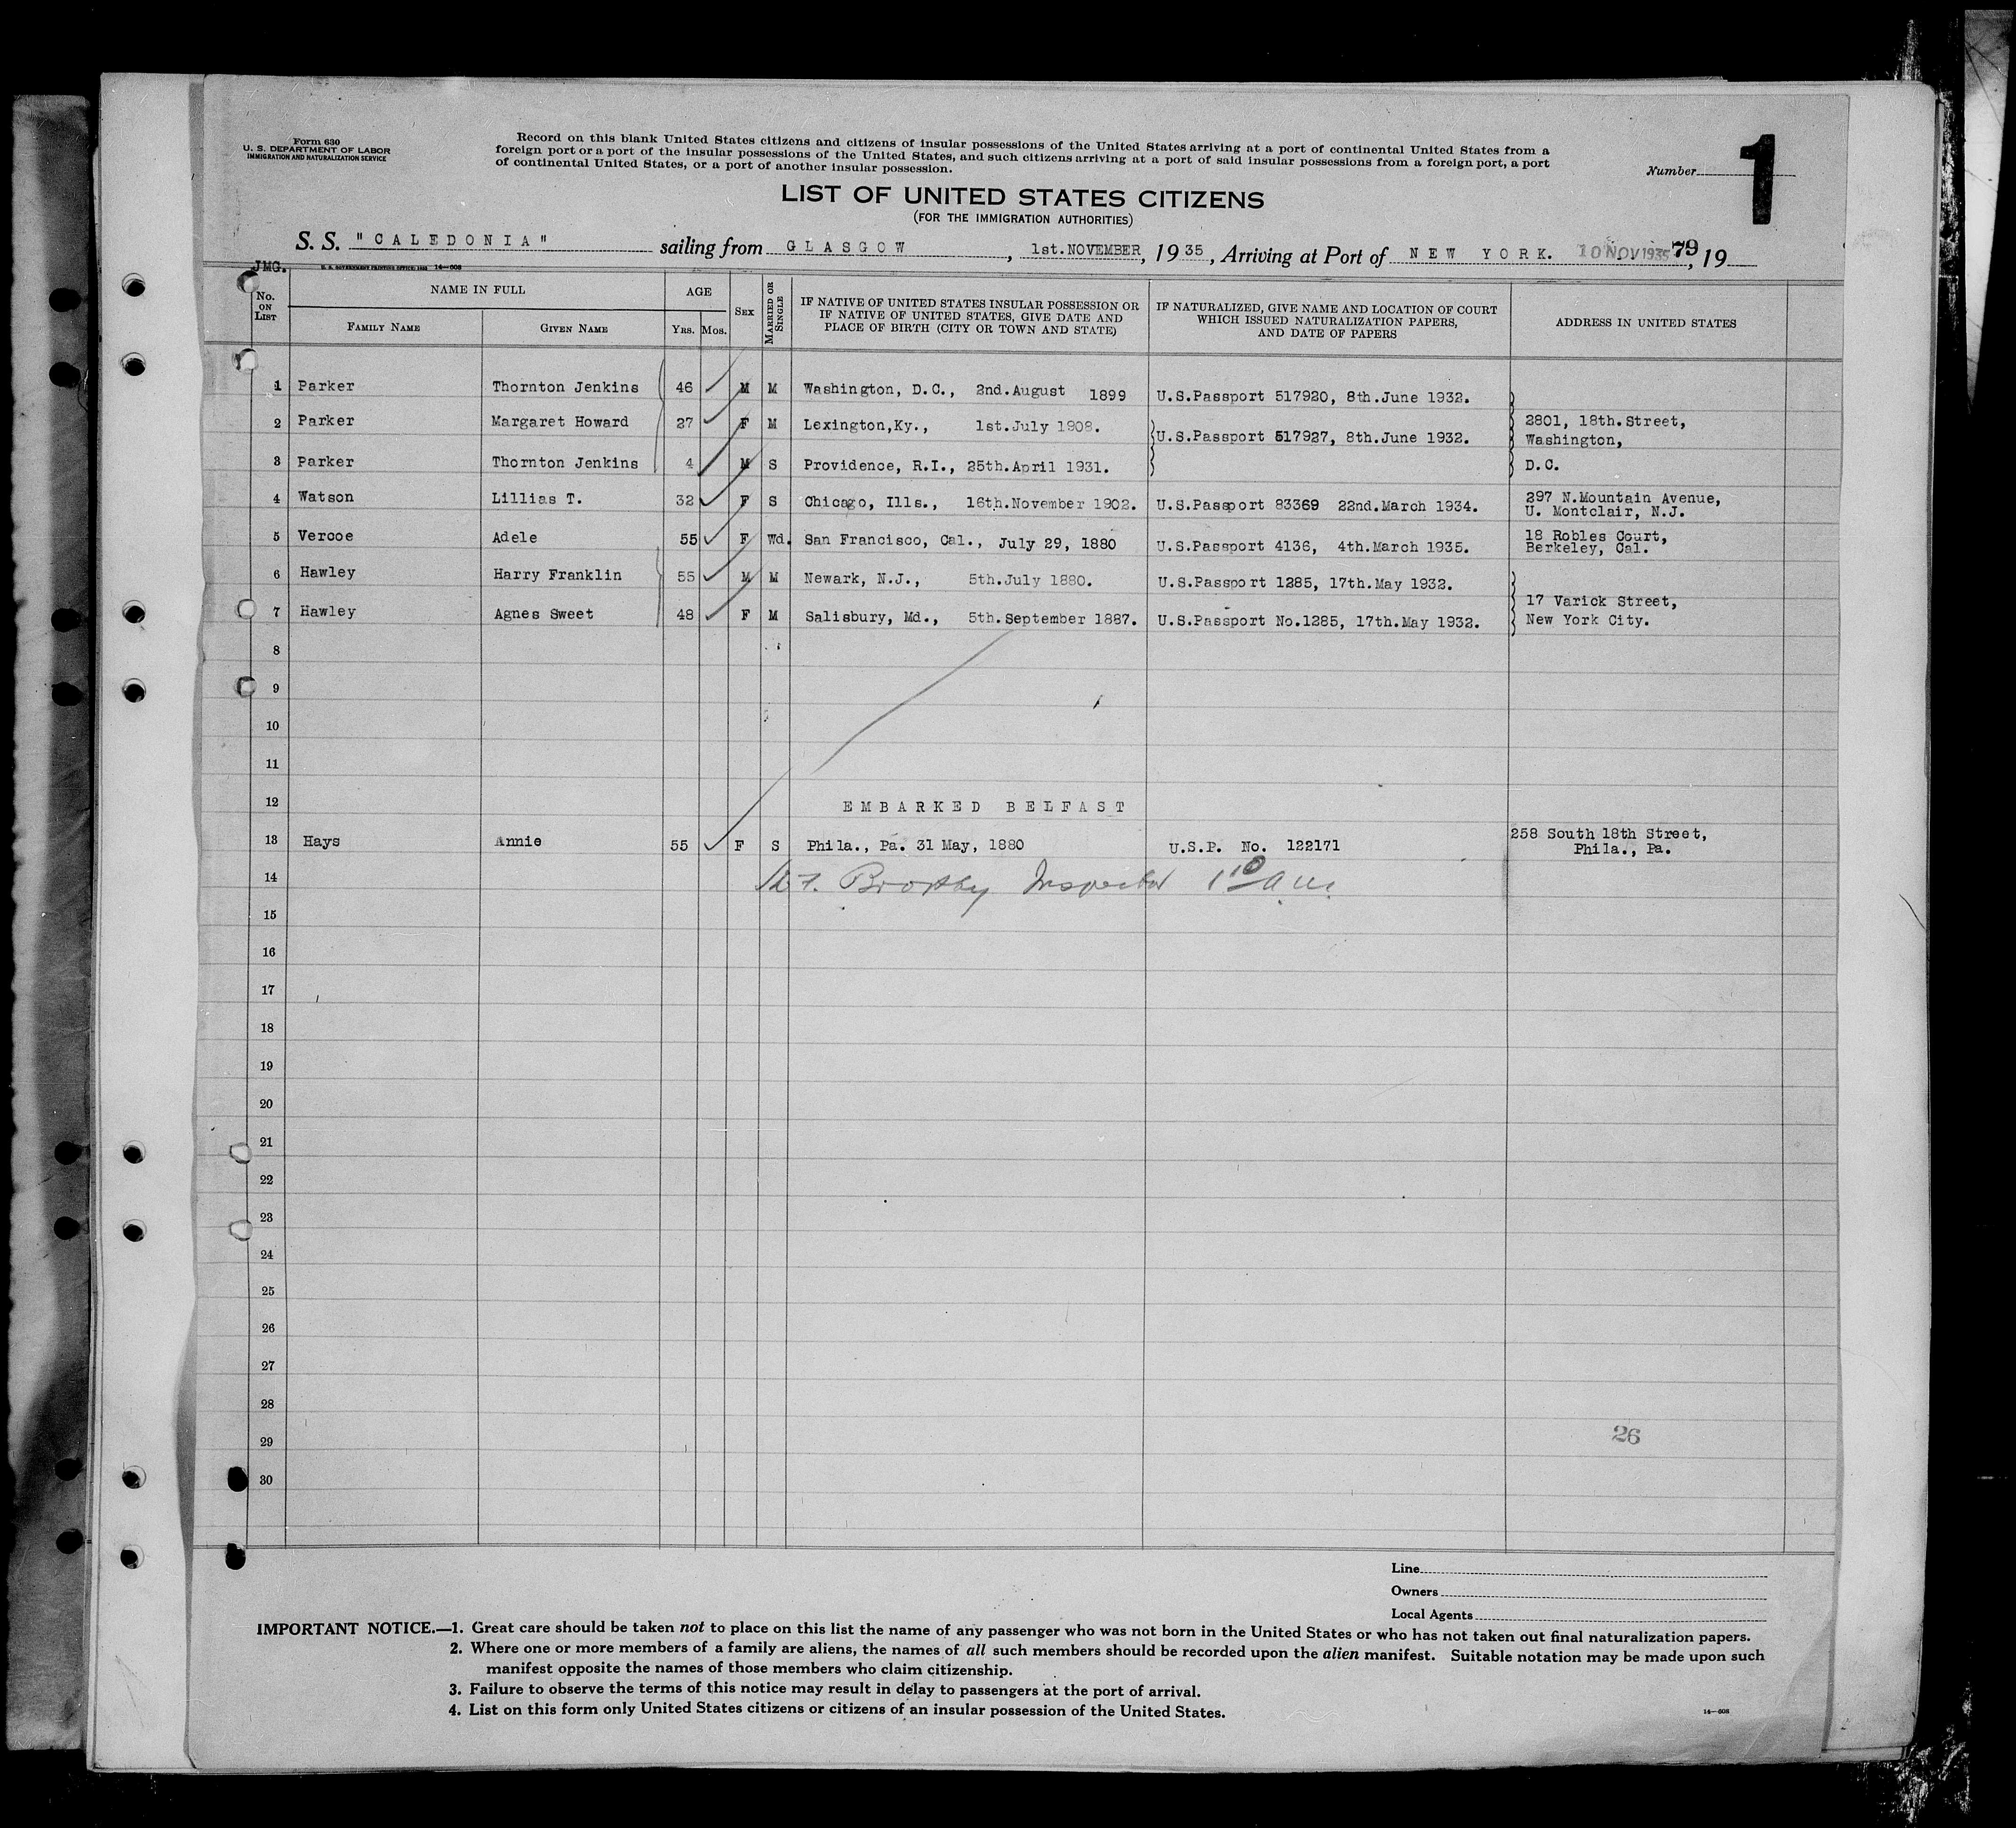 Form 630
U. S. DEPARTMENT OF LABOR
IMMIGRATION AND NATURALIZATION SERVICE
Record on this blank United States citizens and citizens of insular possessions of the United States arriving at a port of continental United States from a
foreign port or a port of the insular possessions of the United States, and such citizens arriving at a port of said insular possessions from a foreign port, a port
of continental United States, or a port of another insular possession.
Number 1
LIST OF UNITED STATES CITIZENS
(FOR THE IMMIGRATION AUTHORITIES)
S. S. "CALEDONIA" sailing from GLASGOW, 1st.NOVEMBER, 1935, Arriving at Port of NEW YORK. 10 NOV 1935 79, 19
JMG. U. S. GOVERNMENT PRINTING OFFICE: 14—608
No. ON LIST NAME IN FULL AGE SEX MARRIED OR SINGLE IF NATIVE OF UNITED STATES INSULAR POSSESSION OR IF NATIVE OF UNITED STATES, GIVE DATE AND PLACE OF BIRTH (CITY OR TOWN AND STATE) IF NATURALIZED, GIVE NAME AND LOCATION OF COURT WHICH ISSUED NATURALIZATION PAPERS, AND DATE OF PAPERS ADDRESS IN UNITED STATES
FAMILY NAME GIVEN NAME YRS. MOS.
1 Parker Thornton Jenkins 46 M M Washington, D.C., 2nd.August 1899 U.S.Passport 517920, 8th.June 1932.
2 Parker Margaret Howard 27 F M Lexington,Ky., 1st.July 1908. U.S.Passport 517927, 8th.June 1932. 2801, 18th.Street, Washington,
3 Parker Thornton Jenkins 4 M S Providence, R.I., 25th.April 1931. D.C.
4 Watson Lillias T. 32 F S Chicago, Ills., 16th.November 1902. U.S.Passport 83369 22nd.March 1934. 297 N.Mountain Avenue, U. Montclair, N.J.
5 Vercoe Adele 55 F Wd. San Francisco, Cal., July 29, 1880 U.S.Passport 4136, 4th.March 1935. 18 Robles Court, Berkeley, Cal.
6 Hawley Harry Franklin 55 M M Newark, N.J., 5th.July 1880. U.S.Passport 1285, 17th.May 1932.
7 Hawley Agnes Sweet 48 F M Salisbury, Md., 5th.September 1887. U.S.Passport No.1285, 17th.May 1932. 17 Varick Street, New York City.
8
9
10
11
12 EMBARKED BELFAST
13 Hays Annie 55 F S Phila., Pa. 31 May, 1880 U.S.P. No. 122171 258 South 18th Street, Phila., Pa.
14 Inspector 1 10 a m.
15
16
17
18
19
20
21
22
23
24
25
26
27
28
26
29
30
Line
Owners
Local Agents
IMPORTANT NOTICE.—1. Great care should be taken not to place on this list the name of any passenger who was not born in the United States or who has not taken out final naturalization papers.
2. Where one or more members of a family are aliens, the names of all such members should be recorded upon the alien manifest. Suitable notation may be made upon such
manifest opposite the names of those members who claim citizenship.
3. Failure to observe the terms of this notice may result in delay to passengers at the port of arrival.
4. List on this form only United States citizens or citizens of an insular possession of the United States.
14—608